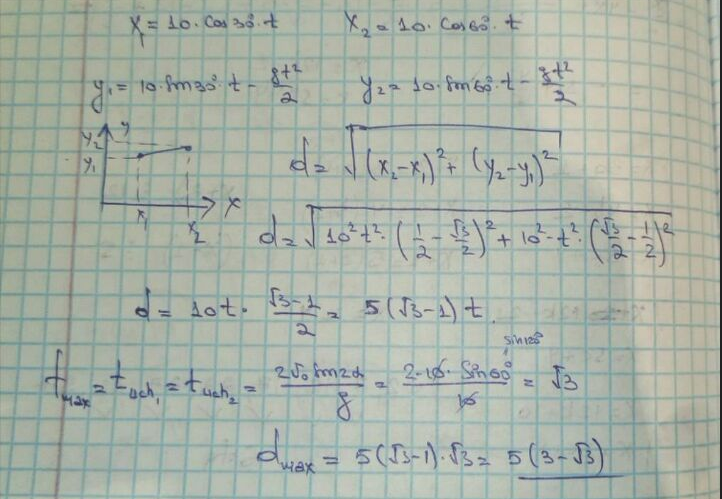 x₁ = 10·cos30°·t    x₂ = 10·cos60°·t
y₁ = 10·sin30°·t - gt²/2    y₂ = 10·sin60°·t - gt²/2
y
y₂
y₁
x
x₁
x₂
d = √((x₂-x₁)² + (y₂-y₁)²)
d = √(10²t²·(1/2 - √3/2)² + 10²·t²·(√3/2 - 1/2)²)
d = 10t·(√3-1)/2 = 5(√3-1)t.
sin120°
t_max = t_uch₁ = t_uch₂ = 2v₀sin2α/g = 2·10·sin60°/10 = √3
d_max = 5(√3-1)·√3 = 5(3-√3)